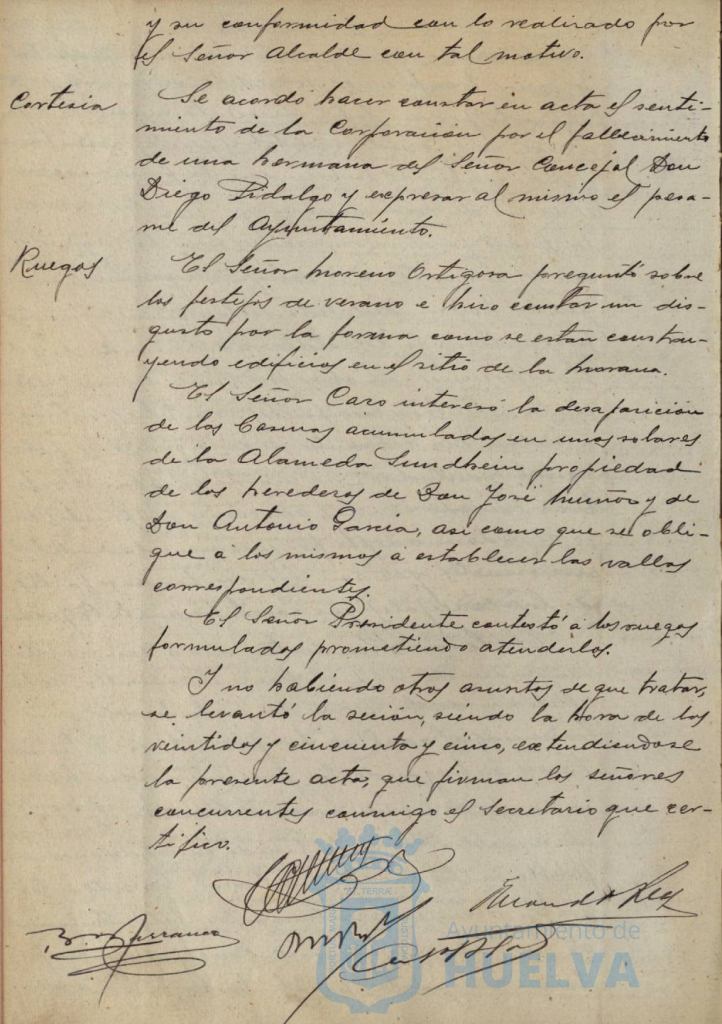 y su conformidad con lo realizado por
el Señor Alcalde con tal motivo.
Cortesia
Se acordó hacer constar en acta el senti-
miento de la Corporación por el fallecimiento
de una hermana del Señor Concejal Don
Diego Fidalgo y expresar al mismo el pesa-
me del Ayuntamiento.
Ruegos
El Señor Moreno Ortigosa preguntó sobre
los festejos de verano e hizo constar un dis-
gusto por la forma como se estan constru-
yendo edificios en el sitio de la
El Señor Cazo interesó la desaparición
de las basuras acumuladas en unos solares
de la Alameda Sundhein propiedad
de los herederos de Don José Muñoz y de
Don Antonio García, asi como que se obli-
gue á los mismos a establecer las vallas
correspondientes.
El Señor Presidente contestó á los ruegos
formulados prometiendo atenderlos.
Y no habiendo otros asuntos de que tratar,
se levantó la seción, siendo la hora de las
veintidos y cincuenta y cinco, extendiendose
la presente acta, que firman los señores
concurrentes conmigo el Secretario que cer-
tifico.
Ayuntamiento de
HUELVA